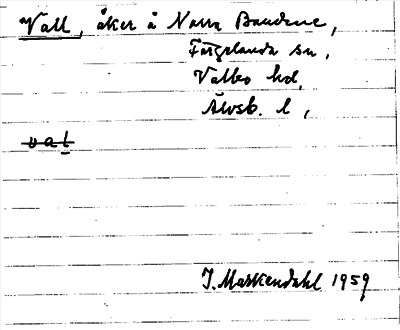 Vall, åker å Norra Bandene,
Färgelanda sn,
Valbo hd,
Älvsb. l,
val
J. Markendahl 1959